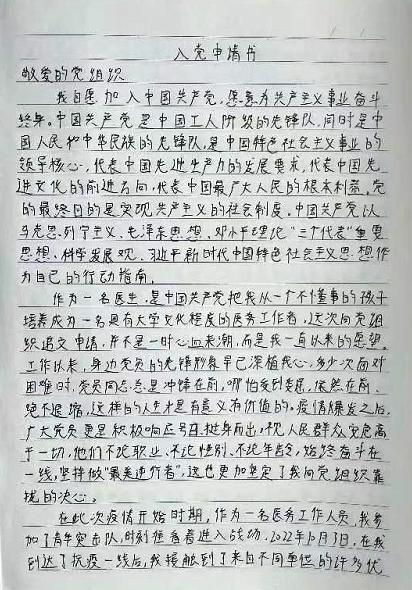 入党申请书
敬爱的党组织
我自愿加入中国共产党,愿意为共产主义事业奋斗
终身。中国共产党是中国工人阶级的先锋队,同时是中
国人民和中华民族的先锋队,是中国特色社会主义事业的
领导核心,代表中国先进生产力的发展要求,代表中国先
进文化的前进方向,代表中国最广大人民的根本利益。党
的最终目的是实现共产主义的社会制度。中国共产党以
马克思列宁主义、毛泽东思想、邓小平理论、“三个代表”重要
思想、科学发展观、习近平新时代中国特色社会主义思想作
为自己的行动指南。
作为一名医生,是中国共产党把我从一个不懂事的孩子
培养成为一名具有大学文化程度的医务工作者,这次向党组
织递交申请,并不是一时心血来潮,而是我一直以来的愿望。
工作以来,身边党员的先锋形象早已深植我心,多少次面对
困难时,党员同志总是冲锋在前,哪怕受到委屈,依然在前,
绝不退缩,这样的人生才是有意义有价值的。疫情爆发之后,
广大党员更是积极响应号召,挺身而出,视人民群众安危高
于一切,他们不论职业、不论性别、不论年龄,始终奋斗在
一线,坚持做“最美逆行者”,这也更加坚定了我向党组织靠
拢的决心。
在此次疫情开始时期,作为一名医务工作人员,我参
加了青年突击队,时刻准备着进入战场,2022年10月3日,在我
到达了抗疫一线后,我接触到了来自不同单位的许多优